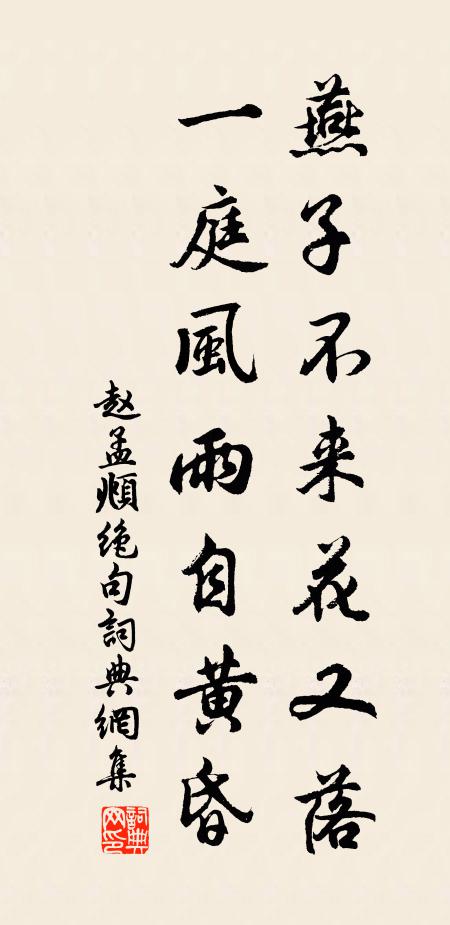 燕子不来花又落
一庭風雨自黄昏
赵孟頫绝句詞典網集
詞典网印